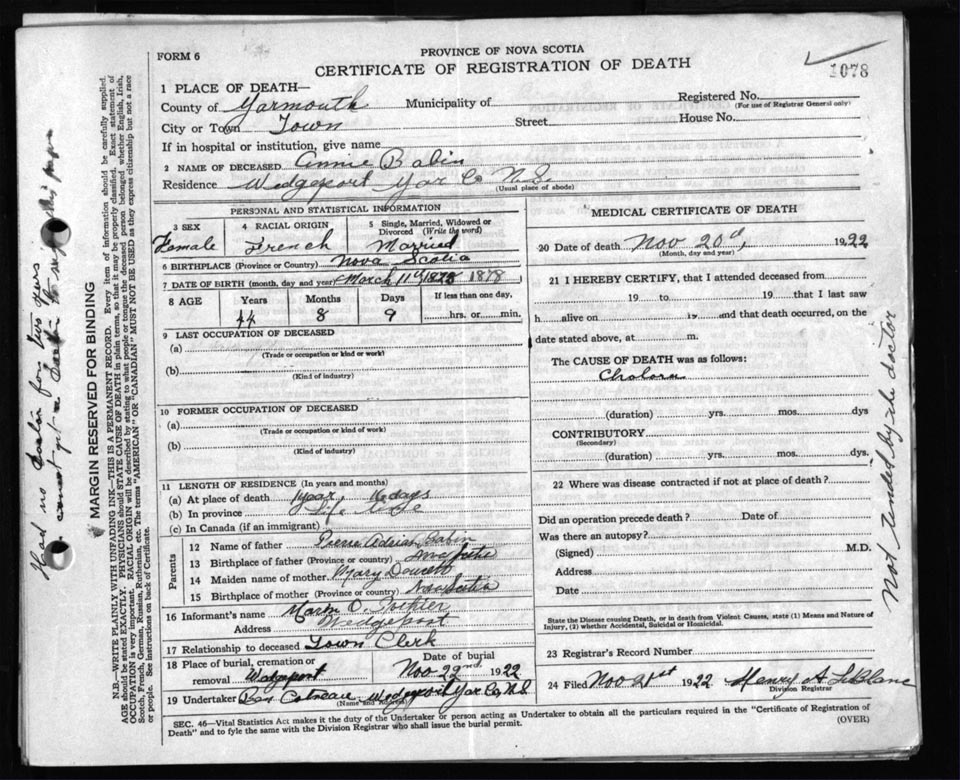 FORM 6
PROVINCE OF NOVA SCOTIA
CERTIFICATE OF REGISTRATION OF DEATH
1078
1 PLACE OF DEATH—
County of Yarmouth Municipality of Registered No.
(For use of Registrar General only)
City or Town Town Street House No.
If in hospital or institution, give name
2 NAME OF DECEASED Annie Babin
Residence Wedgeport Yar Co N.S.
(Usual place of abode)
PERSONAL AND STATISTICAL INFORMATION
3 SEX 4 RACIAL ORIGIN 5 Single, Married, Widowed or Divorced (Write the word)
Female French Married
6 BIRTHPLACE (Province or Country) Nova Scotia
7 DATE OF BIRTH (month, day and year) March 11th 1878 1878
8 AGE Years Months Days If less than one day,
44 8 9 hrs. or min.
9 LAST OCCUPATION OF DECEASED
(a)
(Trade or occupation or kind or work)
(b)
(Kind of industry)
10 FORMER OCCUPATION OF DECEASED
(a)
(Trade or occupation or kind or work)
(b)
(Kind of industry)
11 LENGTH OF RESIDENCE (In years and months)
(a) At place of death 1 year, days
(b) In province Life time
(c) In Canada (if an immigrant)
Parents
12 Name of father Pierre Adrian Babin
13 Birthplace of father (Province or country) Nova Scotia
14 Maiden name of mother Mary Doucett
15 Birthplace of mother (Province or country) Nova Scotia
16 Informant's name O. Pothier
Address Wedgeport
17 Relationship to deceased Town Clerk
18 Place of burial, cremation or removal Wedgeport Date of burial Nov 22nd 1922
19 Undertaker Cotreau Wedgeport Yar Co, N.S
(Name and Address)
MEDICAL CERTIFICATE OF DEATH
20 Date of death Nov 20th, 1922
(Month, day and year)
21 I HEREBY CERTIFY, that I attended deceased from
19 to 19 that I last saw
h alive on 19 and that death occurred, on the
date stated above, at m.
The CAUSE OF DEATH was as follows:
(duration) yrs. mos. dys
CONTRIBUTORY
(Secondary)
(duration) yrs. mos. dys.
22 Where was disease contracted if not at place of death?
Did an operation precede death? Date of
Was there an autopsy?
(Signed) M.D.
Address
Date
State the Disease causing Death, or in death from Violent Causes, state (1) Means and Nature of
Injury, (2) whether Accidental, Suicidal or Homicidal.
23 Registrar's Record Number
24 Filed Nov 21st 1922 Henry A LeBlanc
Division Registrar
SEC. 46—Vital Statistics Act makes it the duty of the Undertaker or person acting as Undertaker to obtain all the particulars required in the "Certificate of Registration of
Death" and to fyle the same with the Division Registrar who shall issue the burial permit. (OVER)
Not tended by doctor
MARGIN RESERVED FOR BINDING
N.B.—WRITE PLAINLY WITH UNFADING INK—THIS IS A PERMANENT RECORD. Every item of information should be carefully supplied.
AGE should be stated EXACTLY. PHYSICIANS should STATE CAUSE OF DEATH in plain terms, so that it may be properly classified. Exact statement of
OCCUPATION is very important. RACIAL ORIGIN will be described by stating to what people or tongue the deceased person belonged whether English, Irish,
Scotch, French, German, Russian, Ruthenian, etc. The terms "AMERICAN" OR "CANADIAN" MUST NOT BE USED as they express citizenship but not a race
or people. See instructions on back of Certificate.
Had no doctor for two years
cannot get a doctor to this paper